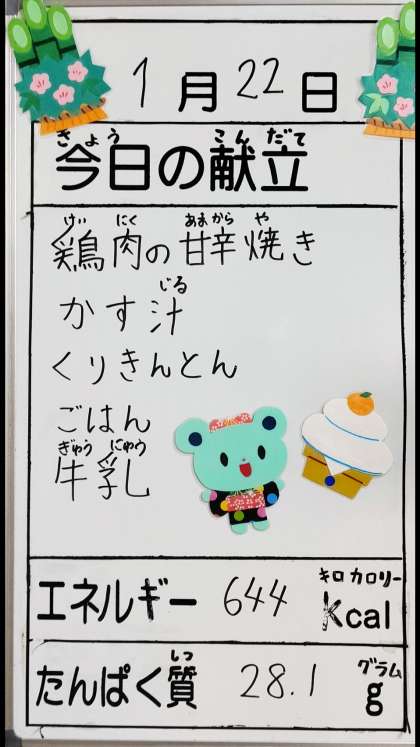 1月22日
きょう こんだて
今日の献立
けい にく あまから や
鶏肉の甘辛焼き
じる
かす汁
くりきんとん
ごはん
ぎゅう にゅう
牛乳
キロカロリー
エネルギー 644 kcal
しつ グラム
たんぱく質 28.1 g